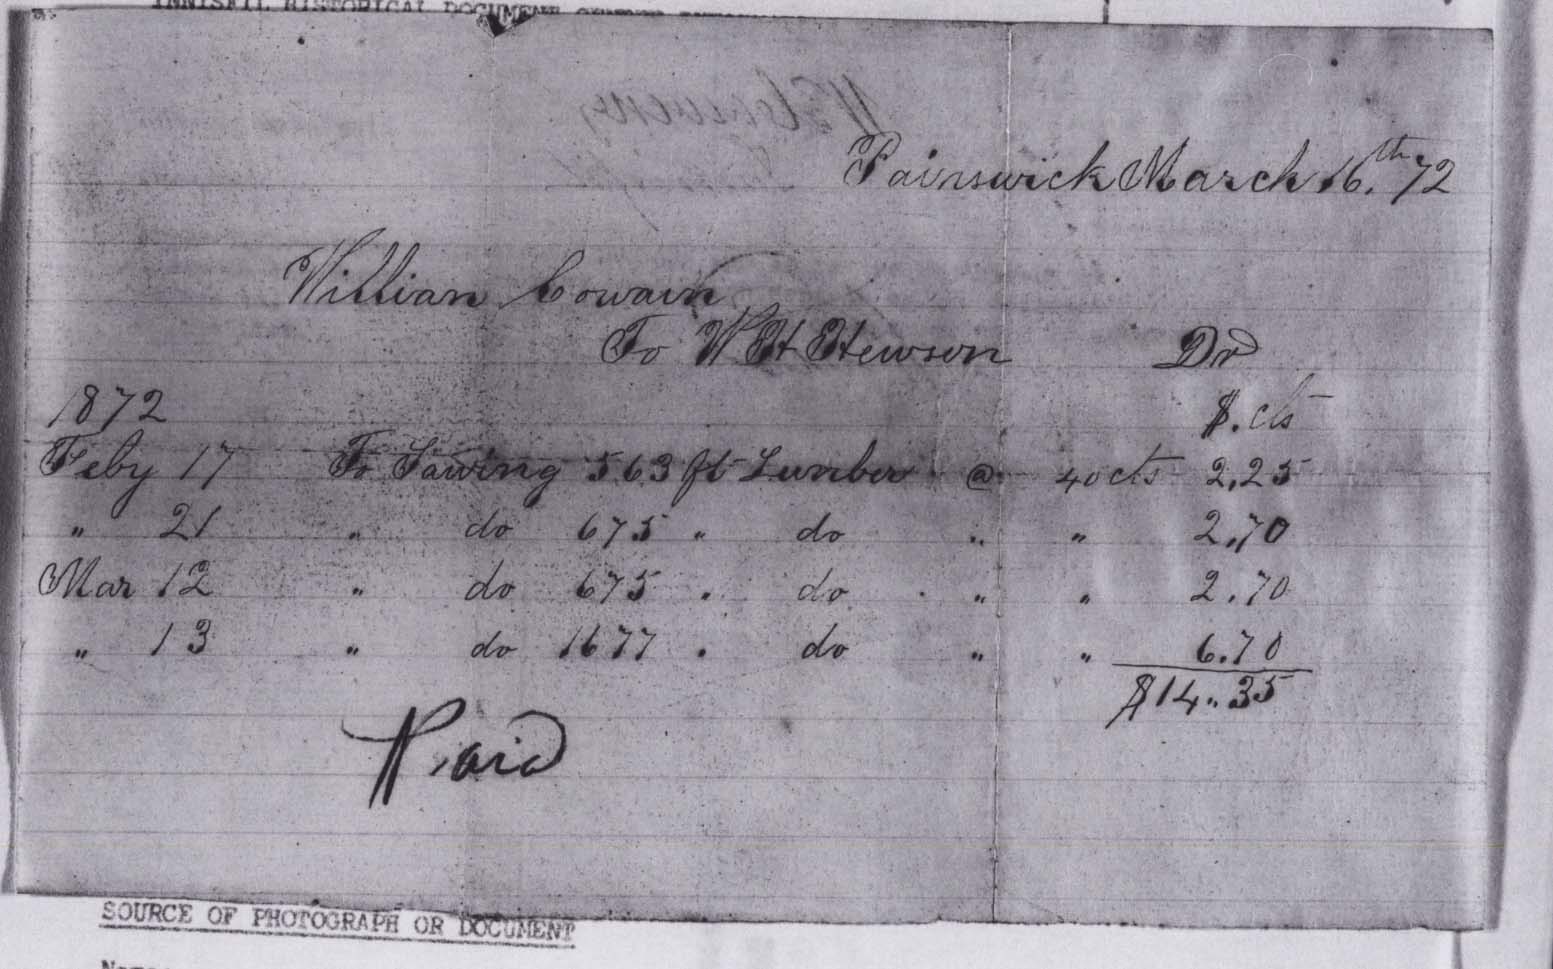 INNISFIL HISTORICAL DOCUMENT
Painswick March 16th, 72
William Cowain
To W H Hewson Dr
1872 $.cts
Feby 17 To Sawing 563 ft Lumber @ 40 cts 2,25
" 21 " do 675 " do " " 2,70
Mar 12 " do 675 . do " " 2.70
" 13 " do 1677 . do " " 6.70
$14..35
Paid
SOURCE OF PHOTOGRAPH OR DOCUMENT